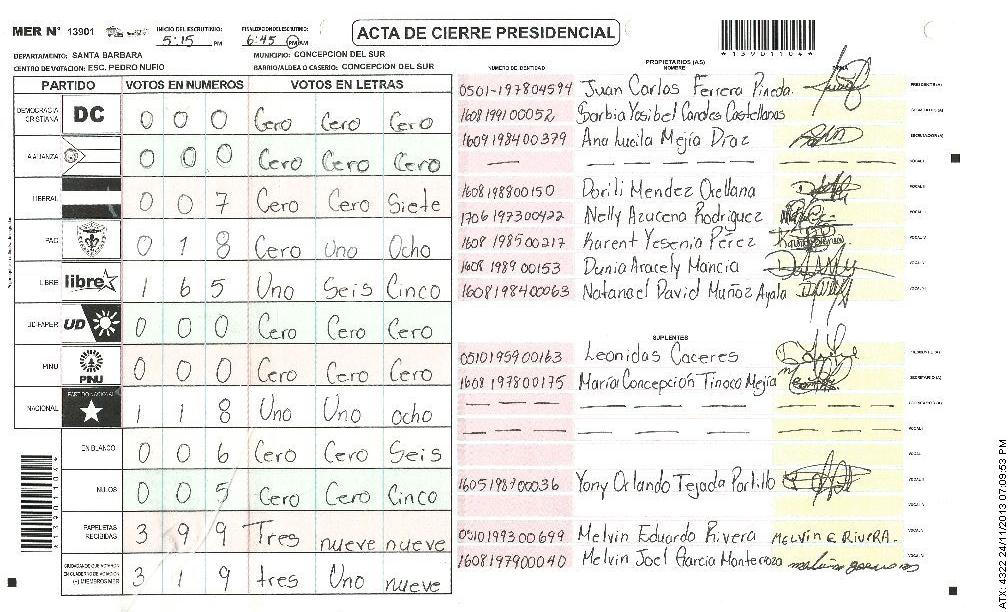 MER N° 13901
INICIO DEL ESCRUTINIO: 5:15 PM
FINALIZACION DEL ESCRUTINIO: 6:45 PM
ACTA DE CIERRE PRESIDENCIAL
*13901104*
DEPARTAMENTO: SANTA BARBARA
MUNICIPIO: CONCEPCION DEL SUR
CENTRO DE VOTACION: ESC. PEDRO NUFIO
BARRIO/ALDEA O CASERIO: CONCEPCION DEL SUR
PARTIDO VOTOS EN NUMEROS VOTOS EN LETRAS
DEMOCRACIA CRISTIANA DC 0 0 0 Cero Cero Cero
ALIANZA 0 0 0 Cero Cero Cero
LIBERAL 0 0 7 Cero Cero Siete
PAC 0 1 8 Cero Uno Ocho
LIBRE libre 1 6 5 Uno Seis Cinco
UD-FAPER UD 0 0 0 Cero Cero Cero
PINU PINU 0 0 0 Cero Cero Cero
NACIONAL PARTIDO NACIONAL 1 1 8 Uno Uno ocho
EN BLANCO 0 0 6 Cero Cero Seis
NULOS 0 0 5 Cero Cero Cinco
PAPELETAS RECIBIDAS 3 9 9 Tres nueve nueve
CIUDADANOS QUE VOTARON EN CUADERNO DE VOTACION (+) MIEMBROS MER 3 1 9 tres Uno nueve
NUMERO DE IDENTIDAD PROPIETARIOS (AS) NOMBRE FIRMA
0501-197804594 Juan Carlos Ferrera Pineda. PRESIDENTE (A)
1608199100052 Sorbia Yosibel Candes Castellanos
1609198400379 Ana Lucila Mejía Díaz SECRETARIO (A)
VOCAL I
1608198800150 Dorili Mendez Orellana VOCAL II
1706197300422 Nelly Azucena Rodriguez
1608198500217 Karent Yesenia Pérez
1608198900153 Dunia Aracely Mancia
1608198400063 Natanael David Muñoz Ayala
SUPLENTES
0510195900163 Leonidas Caceres PRESIDENTE (A)
1608197800175 María Concepción Tinoco Mejía SECRETARIO (A)
1605198700036 Yony Orlando Tejada Portillo
0501199300699 Melvin Eduardo Rivera MELVIN E RIVERA.
1608197900040 Melvin Joel Garcia Monterroza
*13901104*
ATX: 4322 24/11/2013 07:09:53 PM